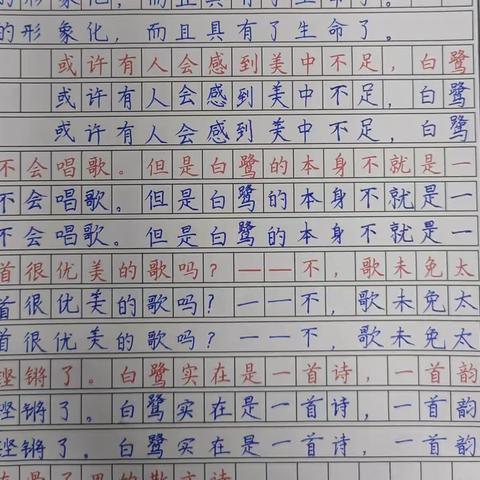 的形象化，而且具有了生命了。
的形象化，而且具有了生命了。
或许有人会感到美中不足，白鹭
或许有人会感到美中不足，白鹭
或许有人会感到美中不足，白鹭
不会唱歌。但是白鹭的本身不就是一
不会唱歌。但是白鹭的本身不就是一
不会唱歌。但是白鹭的本身不就是一
首很优美的歌吗？——不，歌未免太
首很优美的歌吗？——不，歌未免太
首很优美的歌吗？——不，歌未免太
铿锵了。白鹭实在是一首诗，一首韵
铿锵了。白鹭实在是一首诗，一首韵
铿锵了。白鹭实在是一首诗，一首韵
在骨子里的散文诗